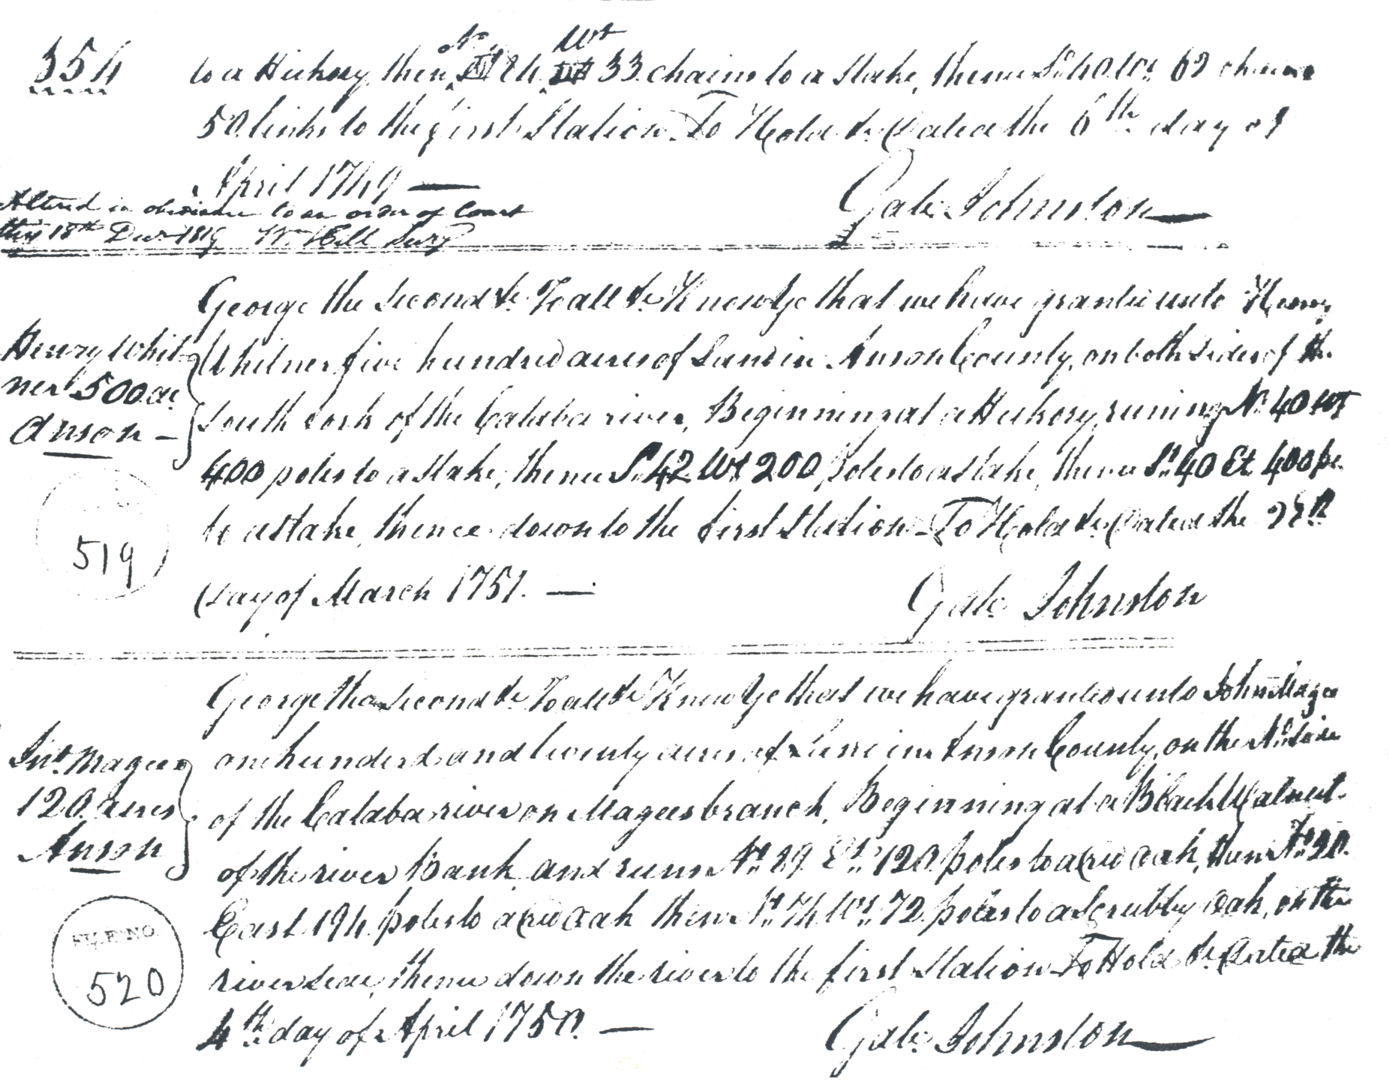 354
to a Hickory, then No 84 Wt 33 chains to a stake, thence So 40 Wt 62 chains
50 links to the first Station. To Hold &c Dated the 6th day of
April 1749 —
Gab. Johnston
Altered in obedience to an order of Court
this 18th Decr 1819 Wm Hill Secy
George the Second &c To all &c Know Ye that we have granted unto Henry
Whitner five hundred acres of Land in Anson County, on both sides of the
South fork of the Cataba river, Beginning at a Hickory, runing No 40 Wt
400 poles to a stake, thence So 42 Wt 200 poles to a stake, thence So 40 Et 400 po
to a stake, thence down to the first Station — To Hold &c Dated the 28th
day of March 1751. —
Gab. Johnston
Henry Whit
ner 500 ac
Anson —
519
George the Second &c To all &c Know Ye that we have granted unto John Magee
one hundred and twenty acres of Land in Anson County, on the No side
of the Cataba river on Magees branch, Beginning at a Black Walnut
of the river Bank, and runs No 29 Et 120 poles to a red oak, then No 20
East 194 poles to a red oak then No 74 Wt 72 poles to a Scrubby oak, on the
river side, thence down the river to the first Station To Hold &c Dated the
4th day of April 1750. —
Gab. Johnston
Jno Magee
120 acres
Anson
FILE NO.
520